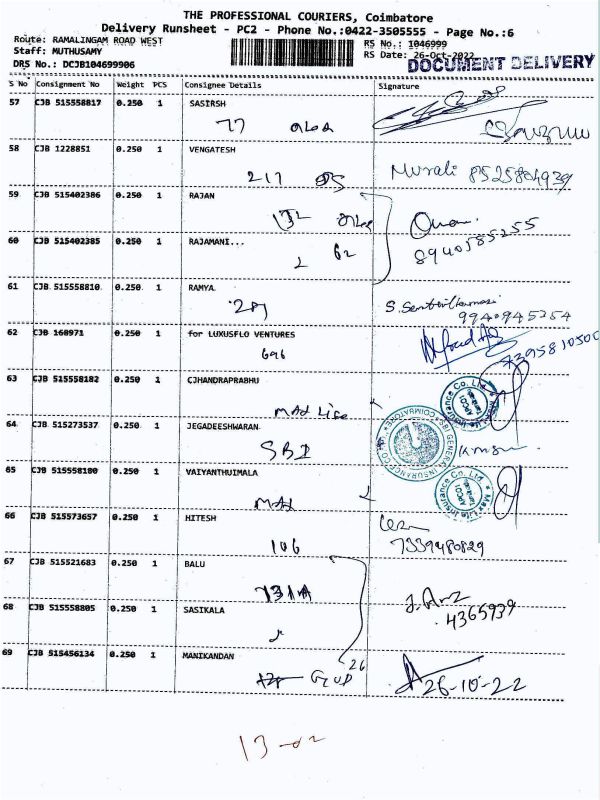 THE PROFESSIONAL COURIERS, Coimbatore
Delivery Runsheet - PC2 - Phone No.:0422-3505555 - Page No.:6
Route: RAMALINGAM ROAD WEST
RS No.: 1046999
Staff: MUTHUSAMY
RS Date: 26-Oct-2022
DRS No.: DCJB104699906
DOCUMENT DELIVERY
S No Consignment No Weight PCS Consignee Details Signature
57 CJB 515558817 0.250 1 SASIRSH
77
58 CJB 1228851 0.250 1 VENGATESH
217
Murali 8525804939
59 CJB 515402386 0.250 1 RAJAN
132
60 CJB 515402385 0.250 1 RAJAMANI...
62
8940585255
61 CJB 515558810 0.250 1 RAMYA
S. Senthilkumar
9940945254
62 CJB 168971 0.250 1 for LUXUSFLO VENTURES
696
7395810500
63 CJB 515558182 0.250 1 CJHANDRAPRABHU
MAX Life
64 CJB 515273537 0.250 1 JEGADEESHWARAN
SBI
SBI GENERAL INSURANCE CO
COIMBATORE
65 CJB 515558180 0.250 1 VAIYANTHUIMALA
MAX
Max Life Insurance Co. Ltd.
66 CJB 515573657 0.250 1 HITESH
106
7339480829
67 CJB 515521683 0.250 1 BALU
131A
68 CJB 515558805 0.250 1 SASIKALA
4365939
69 CJB 515456134 0.250 1 MANIKANDAN
26
26-10-22